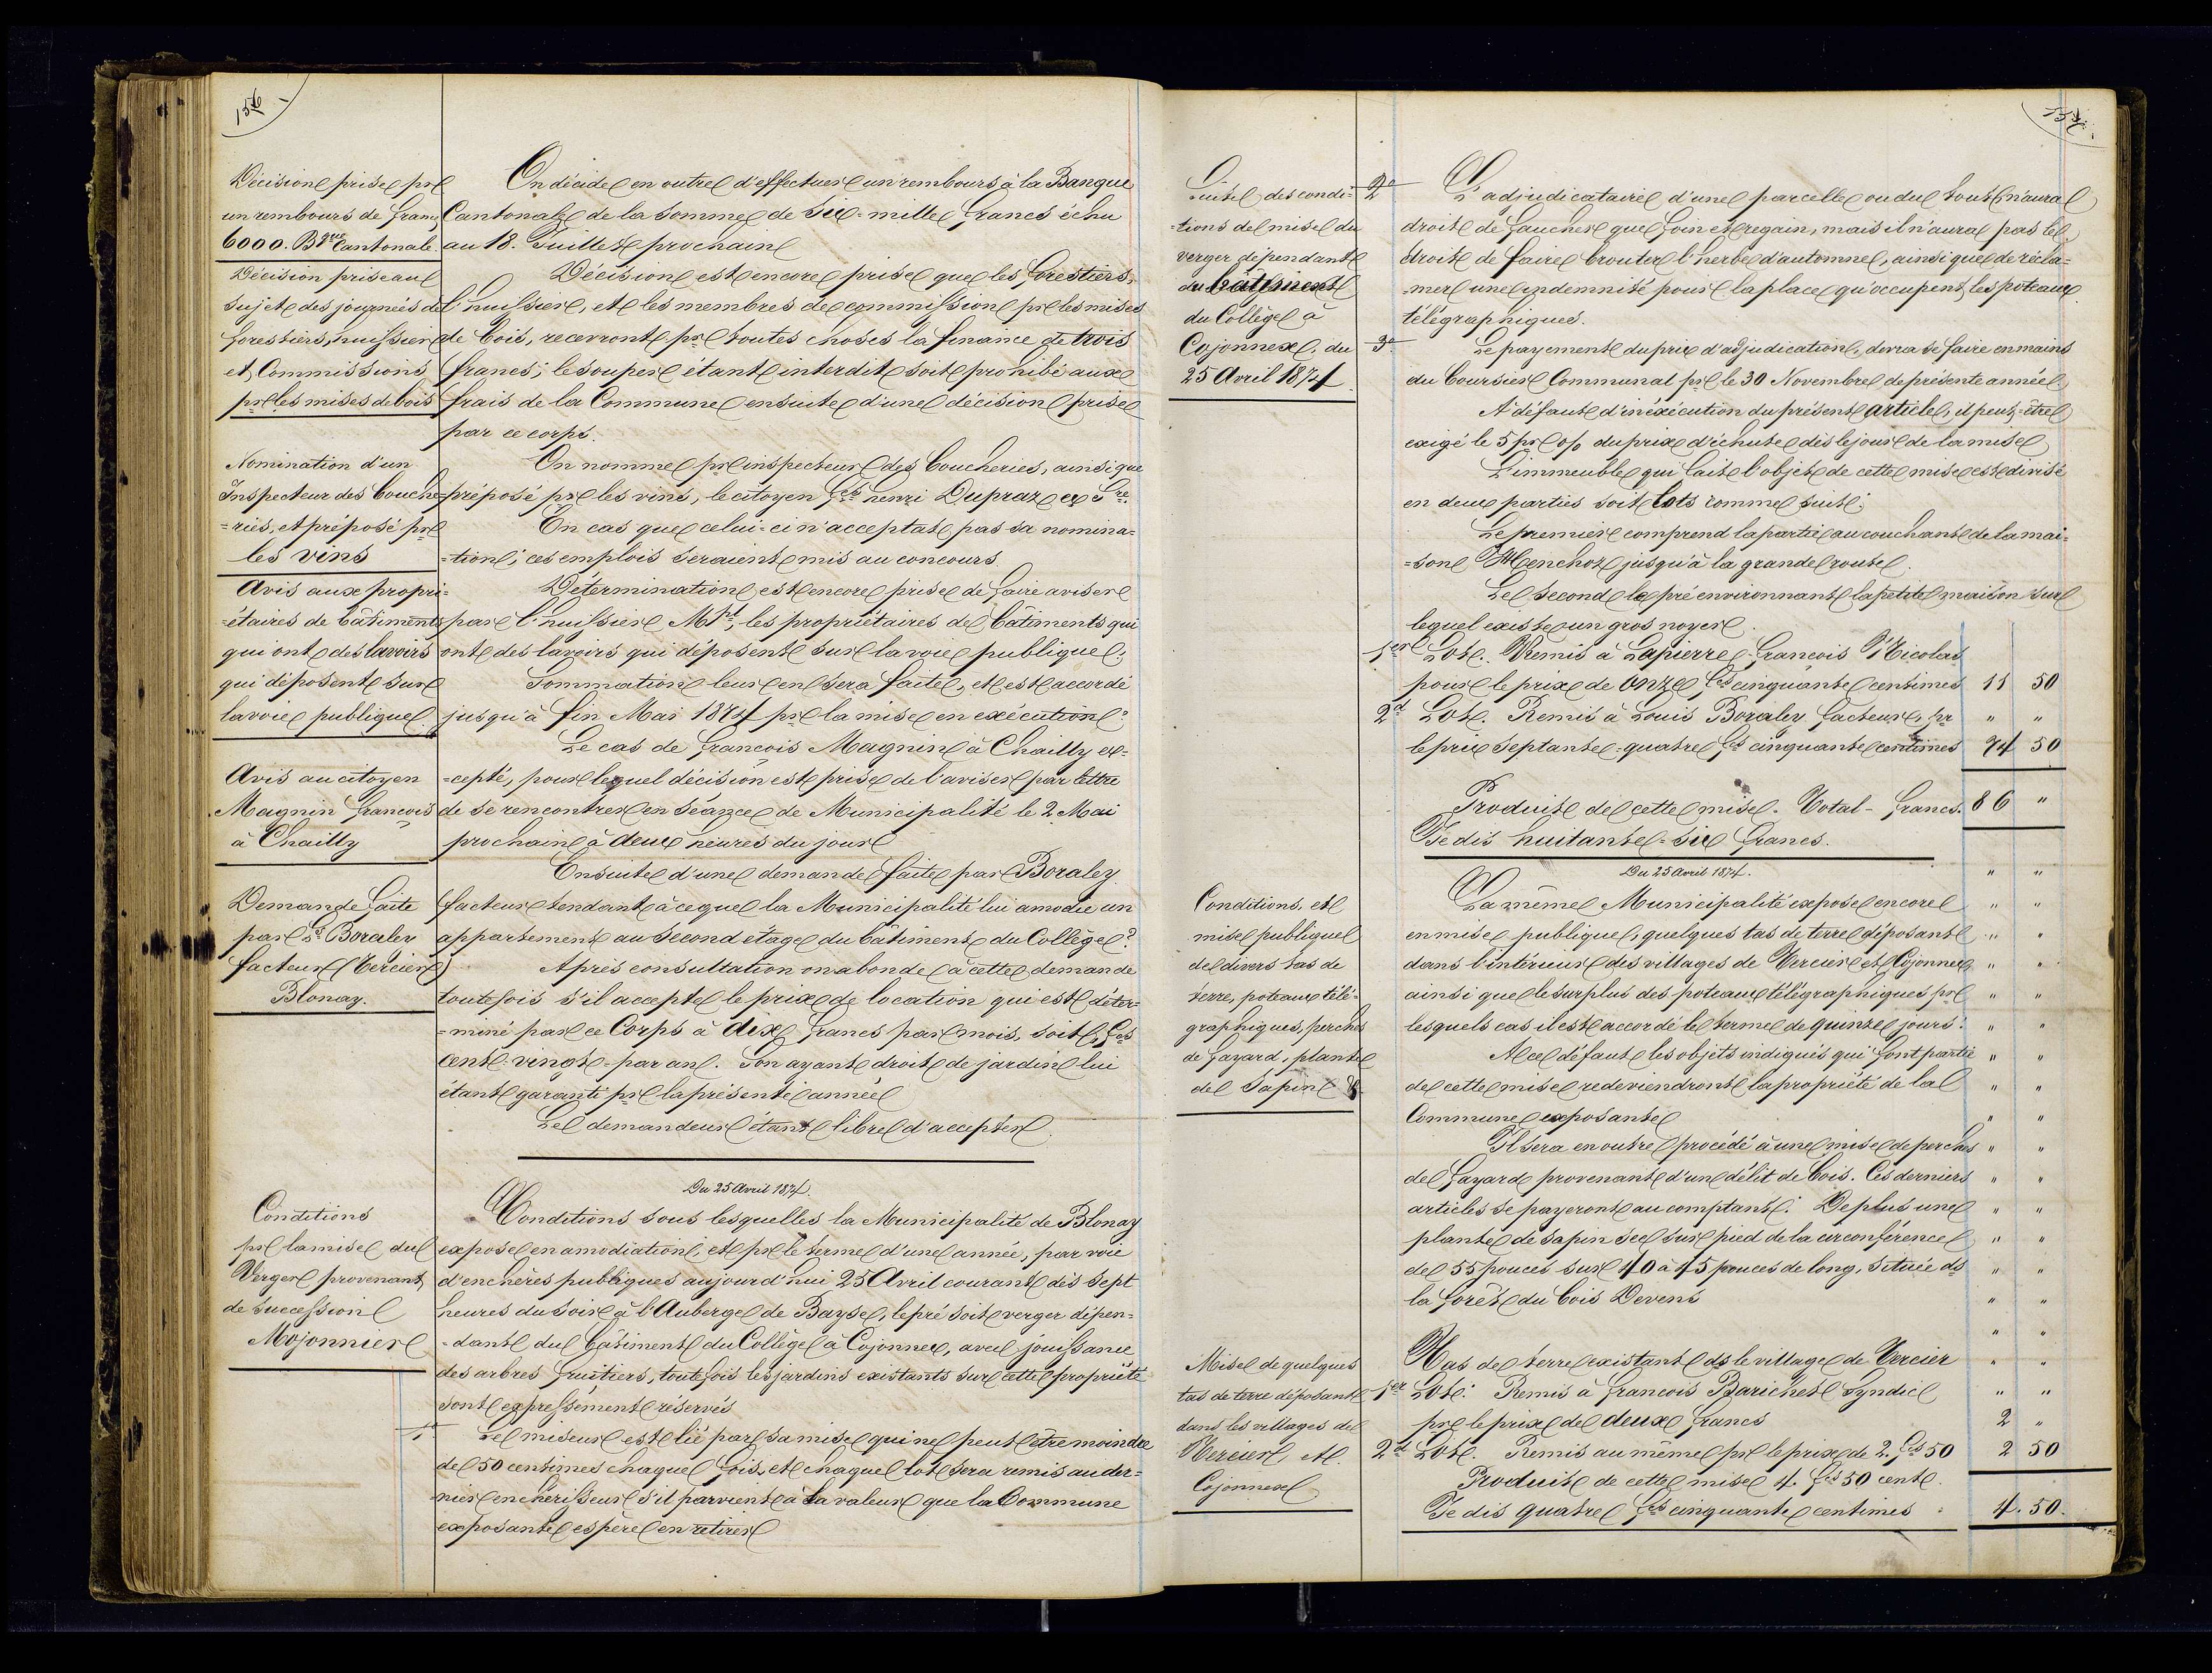 156
Décision prise pr
un rembours de franc,
6000. Bque Cantonale.
On décide en outre d'effectuer un rembours à la Banque
Cantonale de la somme de Six=mille francs échu
au 18. Juillet prochain
Décision prise au
sujet des journées de
forestiers, huissier
et Commissions
pr les mises de bois
Décision est encore prise que les forestiers,
l'huissier, et les membres de commission pr les mises
de bois, recevront pr toutes choses la finance de trois
francs; le souper étant interdit soit prohibé aux
frais de la Commune ensuite d'une décision prise
par ce corps.
Nomination d'un
Inspecteur des bouche=
=ries, et préposé pr
les vins
On nomme pr inspecteur des boucheries, ainsi que
préposé pr les vins, le citoyen fçs henri Dupraz ex Sre.
En cas que celui=ci n'acceptat pas sa nomina=
=tion; ces emplois seraient mis au concours.
Avis aux propri=
=étaires de bâtiments
qui ont des lavoirs
qui déposent sur
la voie publique
Détermination est encore prise de faire aviser
par l'huissier Mpl, les propriétaires de bâtiments qui
ont des lavoirs qui déposent sur la voie publique;
Sommation leur en sera faite, et est accordé
jusqu'à fin Mai 1874 pr la mise en exécution?
Avis au citoyen
Magnin francois
à Chailly
Le cas de francois Magnin à Chailly ex=
=cepté, pour lequel décision est prise de l'aviser par lettre
de se rencontrer en séance de Municipalité le 2 Mai
prochain à deux heures du jour
Demande faite
par Ls Boraley
facteur (Tercier)
Blonay.
Ensuite d'une demande faite par Boraley
facteur tendant à ce que la Municipalité lui amodie un
appartement au second etage du bâtiment du Collège?
Après consultation on abonde à cette demande
toutefois s'il accepte le prix de location qui est déter=
=miné par ce Corps à dix francs par mois, soit, fcs
cent=vingt=par an. Son ayant droit de jardin lui
étant garanti pr la présente année
Le demandeur étant libre d'accepter.
Du 25 Avril 1874.
Conditions
pr la mise du
Verger provenant
de succession
Mojonnier
Conditions sous lesquelles la Municipalité de Blonay
expose en amodiation, et pr le terme d'une année, par voie
d'enchères publiques aujourd'hui 25 Avril courant dès sept
heures du soir à l'Auberge de Bayse, le pré soit verger dépen=
=dant du bâtiment du Collège à Cojonnex, avec jouissance
des arbres fruitiers, toutefois les jardins existants sur cette propriété
sont expressément réservés
1o Le miseur est lié par sa mise qui ne peut être moindre
de 50 centimes chaque fois, et chaque lot sera remis au der=
nier enchérisseur s'il parvient à la valeur que la Commune
exposante espère en retirer
157
Suite des condi=
=tions de mise du
verger dépendant
du bâtiment
du Collège à
Cojonnex, du
25 Avril 1874
2o L'adjudicataire d'une parcelle ou du tout n'aura
droit de faucher que foin et regain, mais il n'aura pas le
droit de faire brouter l'herbe d'automne, ainsi que de récla=
=mer une indemnité pour la place qu'occupent les poteaux
télégraphiques.
3o Le payement du prix d'adjudication, devra se faire en mains
du boursier Communal pr le 30 Novembre de présente année.
A défaut d'inéxécution du présent article, il peut=être
exigé le 5 pr o/o du prix d'échute dès le jour de la mise
L'immeuble qui fait l'objet de cette mise est divisé
en deux parties soit lots comme suit:
Le premier comprend la partie au couchant de la mai=
=son Manchoz jusqu'à la grande route.
Le second le pré environnant la petite maison sur
lequel existe un gros noyer.
1er Lot. Remis à Lapierre francois Nicolas
pour le prix de onze fcs cinquante centimes 11 50
2d Lot. Remis à Louis Boraley facteur, pr " "
le prix septante=quatre fcs cinquante centimes 74 50
Produit de cette mise. Total - francs. 86 "
Je dis huitante=six francs.
Du 25 Avril 1874. " "
Conditions, et
mise publique
de divers tas de
terre, poteaux télé=
graphiques, perches
de fayard, plante
de sapin &
La même Municipalité expose encore " "
en mise publique, quelques tas de terre déposant " "
dans l'intérieur des villages de Tercier et Cojonnex, " "
ainsi que le surplus des poteaux télégraphiques pr " "
lesquels cas il est accordé le terme de quinze jours. " "
A ce défaut les objets indiqués qui font partie " "
de cette mise redeviendront la propriété de la " "
Commune exposante " "
Il sera en outre procédé à une mise de perches " "
de fayard provenant d'un délit de bois. Ces derniers " "
articles se payeront au comptant. De plus une " "
plante de sapin sec sur pied de la circonférence " "
de 55 pouces sur 40 à 45 pouces de long, située ds " "
la forêt du bois Devens " "
" "
Mise de quelques
tas de terre déposant
dans les villages de
Tercier, et
Cojonnex
Tas de terre existant ds le village de Tercier " "
1er Lot. Remis à francois Barichet Syndic " "
pr le prix de deux francs 2 "
2d Lot. Remis au même pr le prix de 2. fcs 50 2 50
Produit de cette mise 4. fcs 50 cent.
Je dis quatre fcs cinquante centimes = 4. 50.